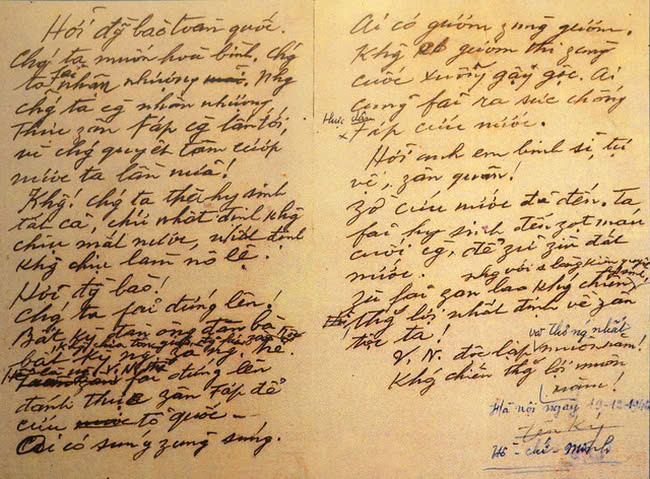 Hỡi đg̃ bào toàn quốc.
Chǵ ta muốn hoà bình, chǵ
ta fải nhân nhượng. Nhg
chǵ ta cg̀ nhân nhượng
thực zân Fáp cg̀ lấn tới,
vì chǵ quyết tâm cướp
nước ta lần nữa!
Khg! chǵ ta thà hy sinh
tất cả, chứ nhất định khg
chịu mất nước, nhất định
khg chịu làm nô lệ.
Hỡi đg̀ bào!
Chǵ ta fải đứng lên!
Bất kỳ đàn ông, đàn bà
bất kỳ ng. zà ng. trẻ.
fải đứng lên
đánh thực zân Fáp để
cứu tổ quốc –
Ai có súng zùng súng.
Ai có gươm zùng gươm.
Khg có gươm thì zùng
cuốc xuổng gậy gộc. Ai
cũng fải ra sức chống
thực zân Fáp cứu nước.
Hỡi anh em binh sĩ, tự
vệ, zân quân!
Zờ cứu nước đã đến. Ta
fải hy sinh đến zọt máu
cuối cg̀, để zữ zìn đất
nước.
Zù fải gian lao khǵ chiến
nhg với 1 lòng kiên quyết
thg̃ lợi nhất định về zân
tộc ta!
V. N. độc lập và thống nhất muôn năm!
Khǵ chiến thg̃ lợi muôn
năm!
Hà nội ngày 19-12-1946
Hồ-chí-Minh